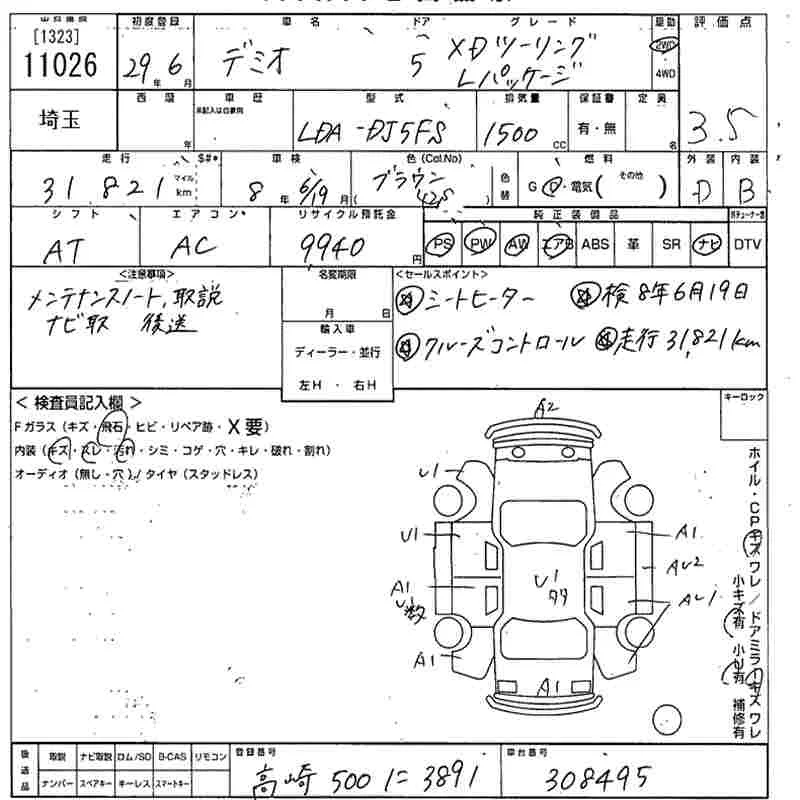 [1323]
11026
初度登録
29年 6月
車名
デミオ
ドア
5
グレード
XDツーリング
Lパッケージ
駆動
2WD
4WD
評価点
3.5
埼玉
西暦
年
車歴
型式
LDA-DJ5FS
排気量
1500 CC
保証書
有・無
定員
走行
31821
マイル
km
S#*
車検
8年 6/19月
色(Col.No)
ブラウン
42S
色替
燃料
G D・電気( その他 )
外装
D
内装
B
シフト
AT
エアコン
AC
リサイクル預託金
9940円
純正装備品
PS PW AW エアB ABS 革 SR ナビ DTV
<注意事項>
メンテナンスノート、取説
ナビ取 後送
名変期限
月 日
輸入車
ディーラー・並行
左H ・ 右H
<セールスポイント>
シートヒーター 検 8年6月19日
クルーズコントロール 走行31,821km
キーロック
< 検査員記入欄 >
Fガラス (キズ・飛石・ヒビ・リペア跡・X要)
内装 (キズ・スレ・汚れ・シミ・コゲ・穴・キレ・破れ・割れ)
オーディオ (無し・穴) / タイヤ (スタッドレス)
A2
U1
U1
A1
A1
U数
A1
U1
A1
AU2
AU1
A1
ホイル・CPキズワレ / ドアミラーキズワレ
小キズ有 小U有 補修有
後送品
取説 ナビ取説 ロム/SD B-CAS リモコン
ナンバー スペアキー キーレス スマートキー
登録番号
高崎 500 に 3891
車台番号
308495